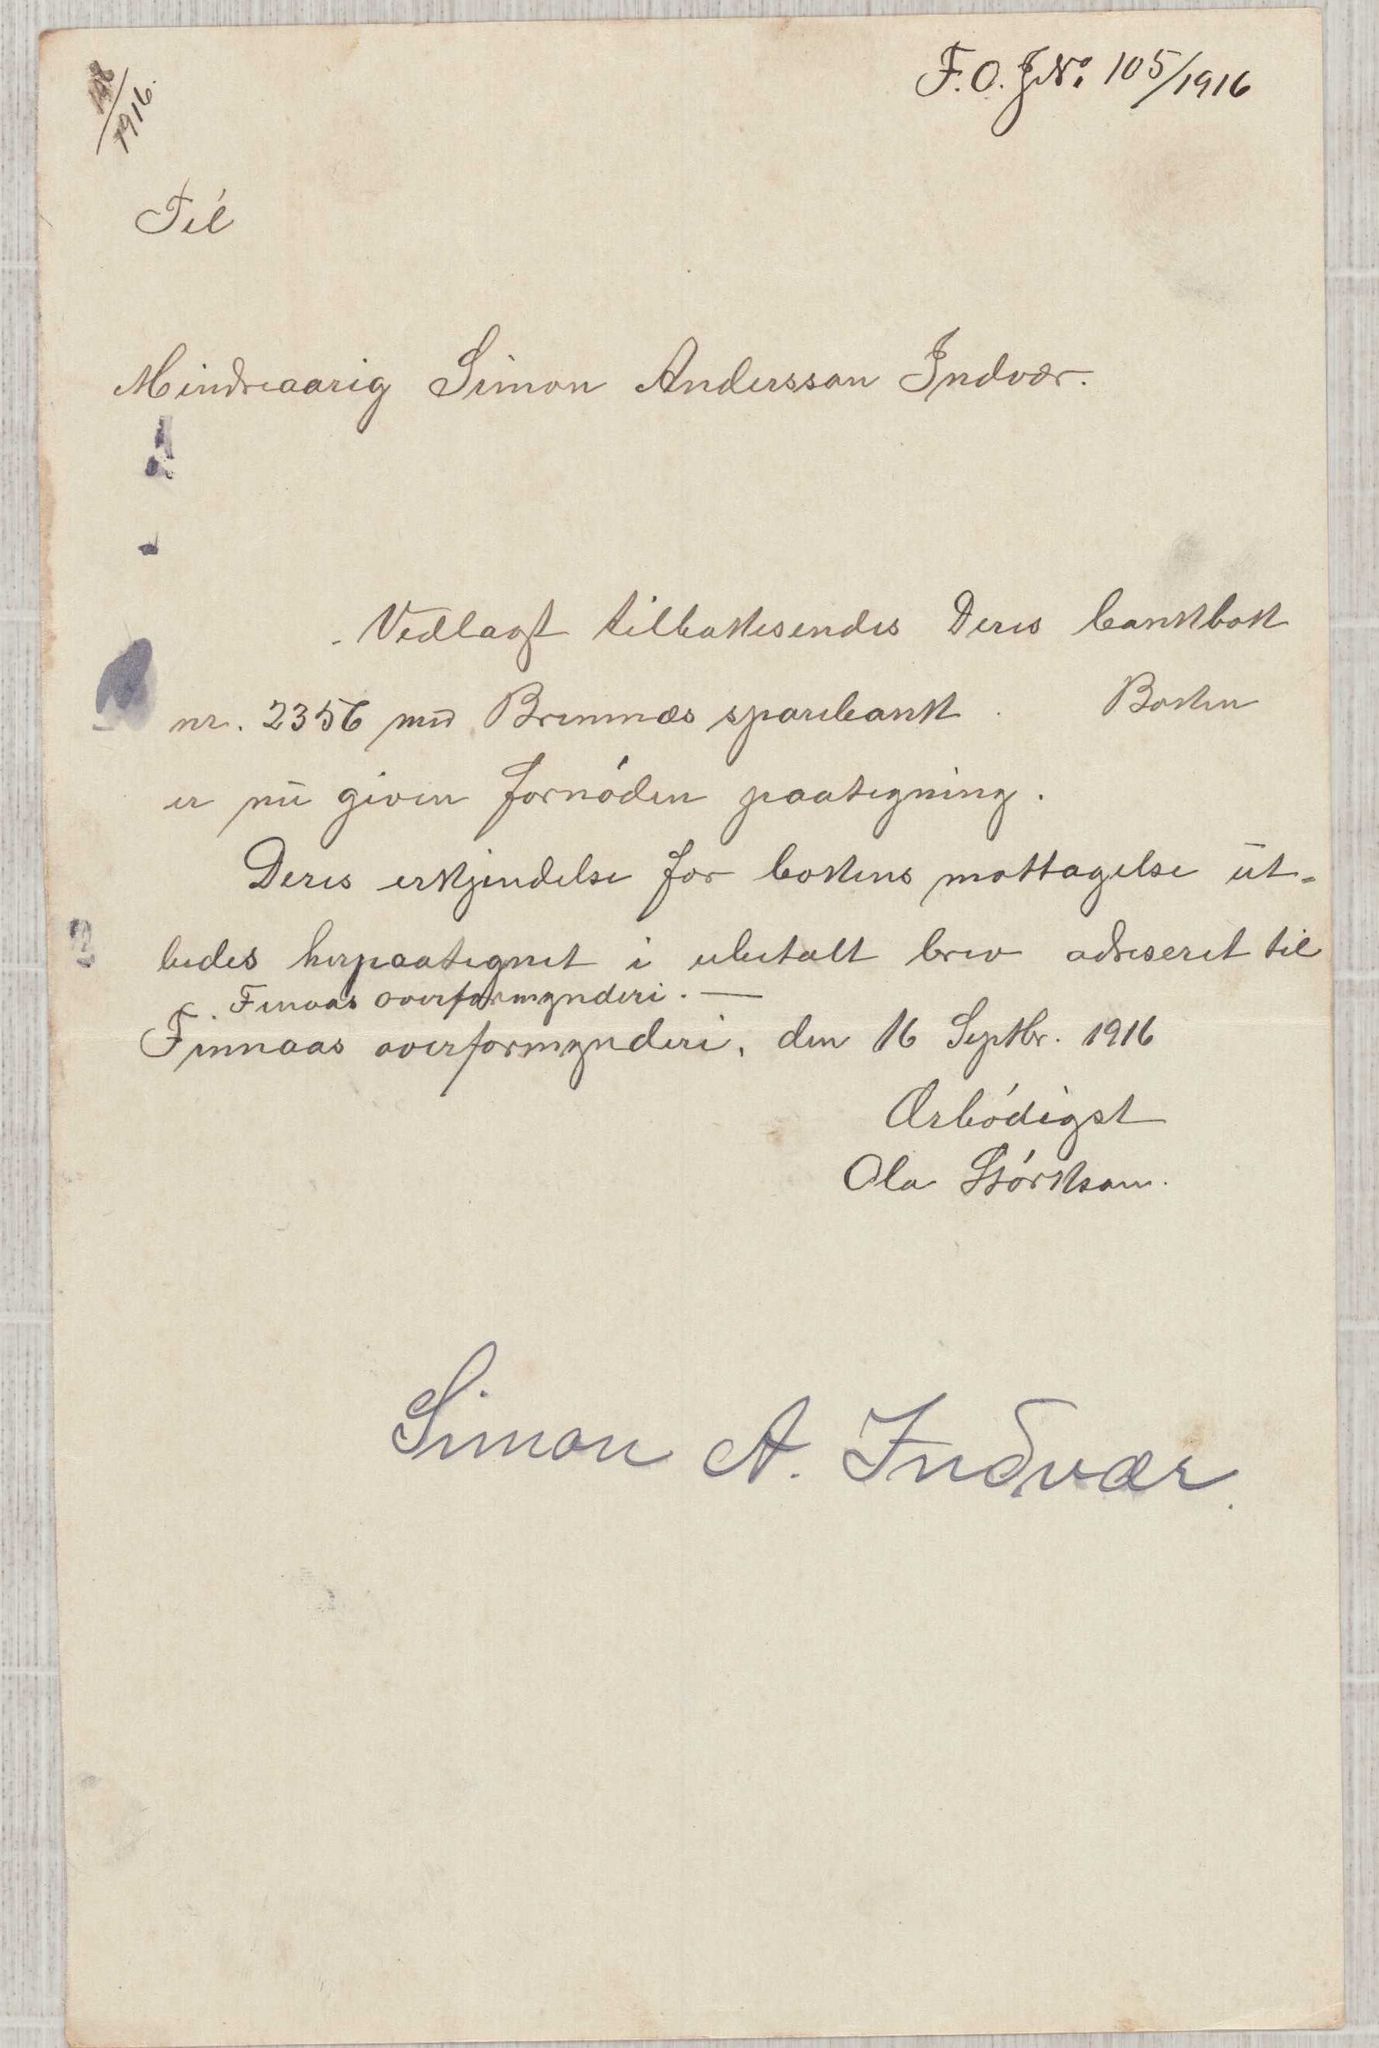 F.O. J.No. 105/1916
/1916.
Til
Mindreaarig Simon Andersson Indvær.
Vedlagt tilbakesendes Deres bankbok
nr. 2356 med Bremnæs sparebank. Boken
er nu given fornöden paategning.
Deres erkjendelse for bokens mottagelse ut-
bedes herpaategnet i ubetalt brev adreseret til
Finaas overformynderi. —
Finnaas overformynderi, den 16 Septbr. 1916
Ærbödigst
Ola Störksom.
Simon A. Indvær.